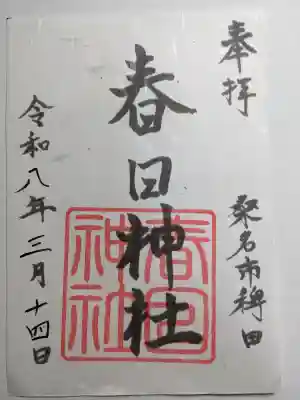 奉拝
桑名市稗田
春日神社
春日神社
令和八年三月十四日